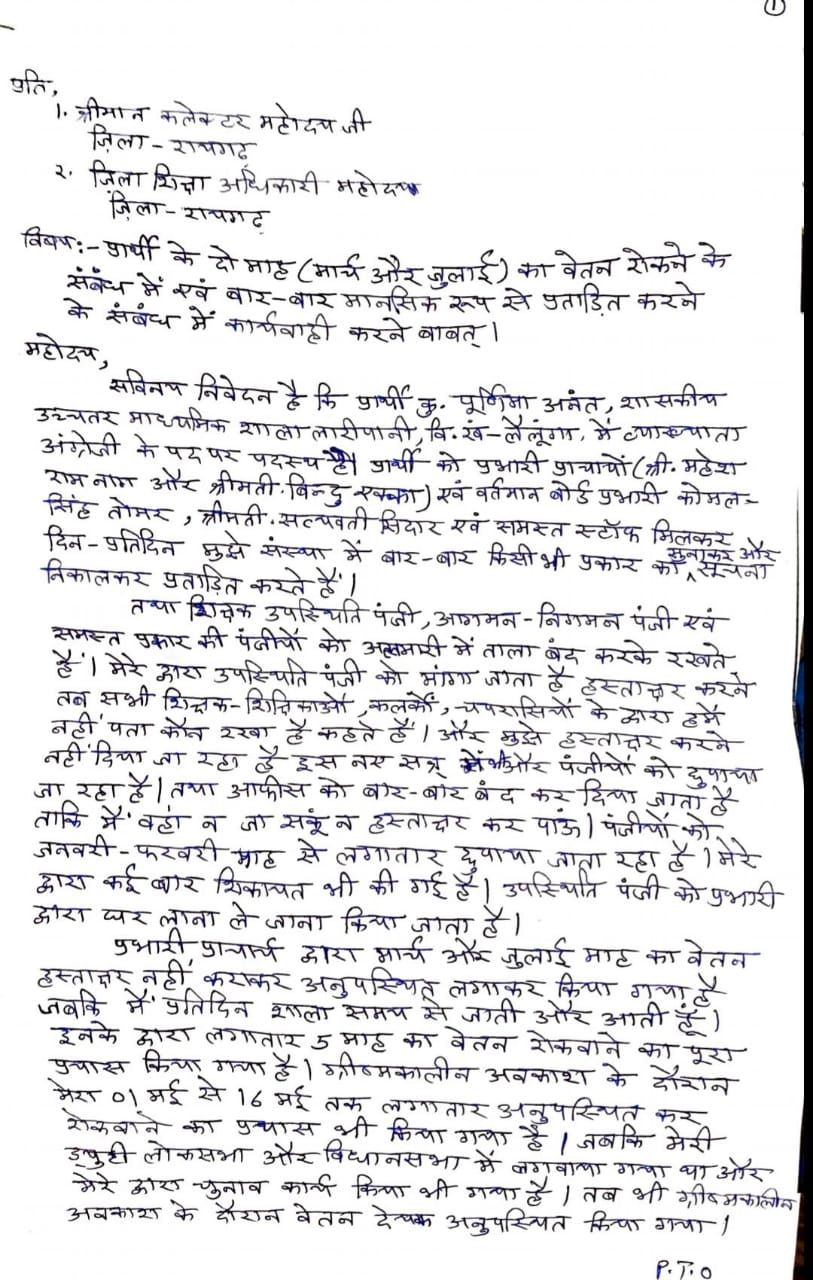 ①
प्रति,
1. श्रीमान कलेक्टर महोदय जी
जिला - रायगढ़
२. जिला शिक्षा अधिकारी महोदय
जिला - रायगढ़
विषय:- प्रार्थी के दो माह (मार्च और जुलाई) का वेतन रोकने के
संबंध में एवं बार-बार मानसिक रूप से प्रताड़ित करने
के संबंध में कार्यवाही करने बाबत्।
महोदय,
सविनय निवेदन है कि प्रार्थी कु. पूर्णिमा अनंत, शासकीय
उच्चतर माध्यमिक शाला लारीपानी, वि.खं-लैलूंगा, में व्याख्याता
अंग्रेजी के पद पर पदस्थ है। प्रार्थी को प्रभारी प्राचार्यो (श्री. महेश
राम नाग और श्रीमती. बिन्दु एक्का) एवं वर्तमान बोर्ड प्रभारी कोमल-
सिंह तोमर, श्रीमती. सत्यवती सिदार एवं समस्त स्टॉफ मिलकर
दिन-प्रतिदिन मुझे संस्था में बार-बार किसी भी प्रकार का सुनाकर और सूचना
निकालकर प्रताड़ित करते हैं।
तथा शिक्षक उपस्थिति पंजी, आगमन-निगमन पंजी एवं
समस्त प्रकार की पंजीयों को अलमारी में ताला बंद करके रखते
हैं। मेरे द्वारा उपस्थिति पंजी को मांगा जाता है हस्ताक्षर करने
तब सभी शिक्षक-शिक्षिकाओं, कलर्कों, चपरासियों के द्वारा हमें
नहीं पता कौन रखा है कहते हैं। और मुझे हस्ताक्षर करने
नहीं दिया जा रहा है इस नए सत्र में भी और पंजीयों को छुपाया
जा रहा है। तथा आफीस को बार-बार बंद कर दिया जाता है
ताकि मैं वहां न जा सकूं न हस्ताक्षर कर पाऊं। पंजीयों को
जनवरी-फरवरी माह से लगातार छुपाया जाता रहा है। मेरे
द्वारा कई बार शिकायत भी की गई है। उपस्थिति पंजी को प्रभारी
द्वारा घर लाना ले जाना किया जाता है।
प्रभारी प्राचार्य द्वारा मार्च और जुलाई माह का वेतन
हस्ताक्षर नहीं कराकर अनुपस्थित लगाकर किया गया है
जबकि मैं प्रतिदिन शाला समय से जाती और आती हूँ।
इनके द्वारा लगातार 5 माह का वेतन रोकवाने का पूरा
प्रयास किया गया है। ग्रीष्मकालीन अवकाश के दौरान
मेरा 01 मई से 16 मई तक लगातार अनुपस्थित कर
रोकवाने का प्रयास भी किया गया है। जबकि मेरी
ड्युटी लोकसभा और विधानसभा में लगवाया गया था और
मेरे द्वारा चुनाव कार्य किया भी गया है। तब भी ग्रीष्मकालीन
अवकाश के दौरान वेतन देयक अनुपस्थित किया गया।
P.T.O